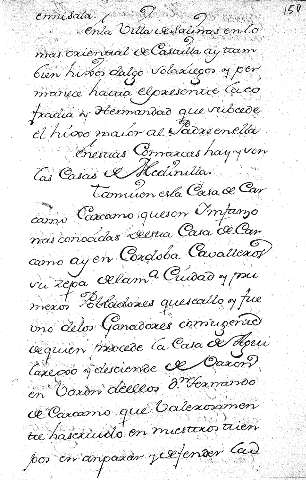 158
en misala.
en la Villa de salinas en lo
mas oriental de Castilla ay tam
bien hixos dalgo solariegos y per
manece hasta el presente la co
fradia y Hermandad que subcede
el hixo maior al Padre en ella
en estas Comarcas hay y son
las Casas de Medinilla.
Tamuien es la Casa de Car
camo Carcamo que son Infanzo
nas conocidas de esta Casa de Car
camo ay en Cordoba Cavalleros
su zepa de la m.ª Ciudad y pri
meros Pobladores que sallo y fue
uno de los Ganadores con su gente
de quien procede la Casa de Agui
larejo y desciende de Varon
en Varon de ellos d.n Fernando
de Carcamo que Valerosamen
te ha seruido en nuestros tiem
pos en anparar y defender la d